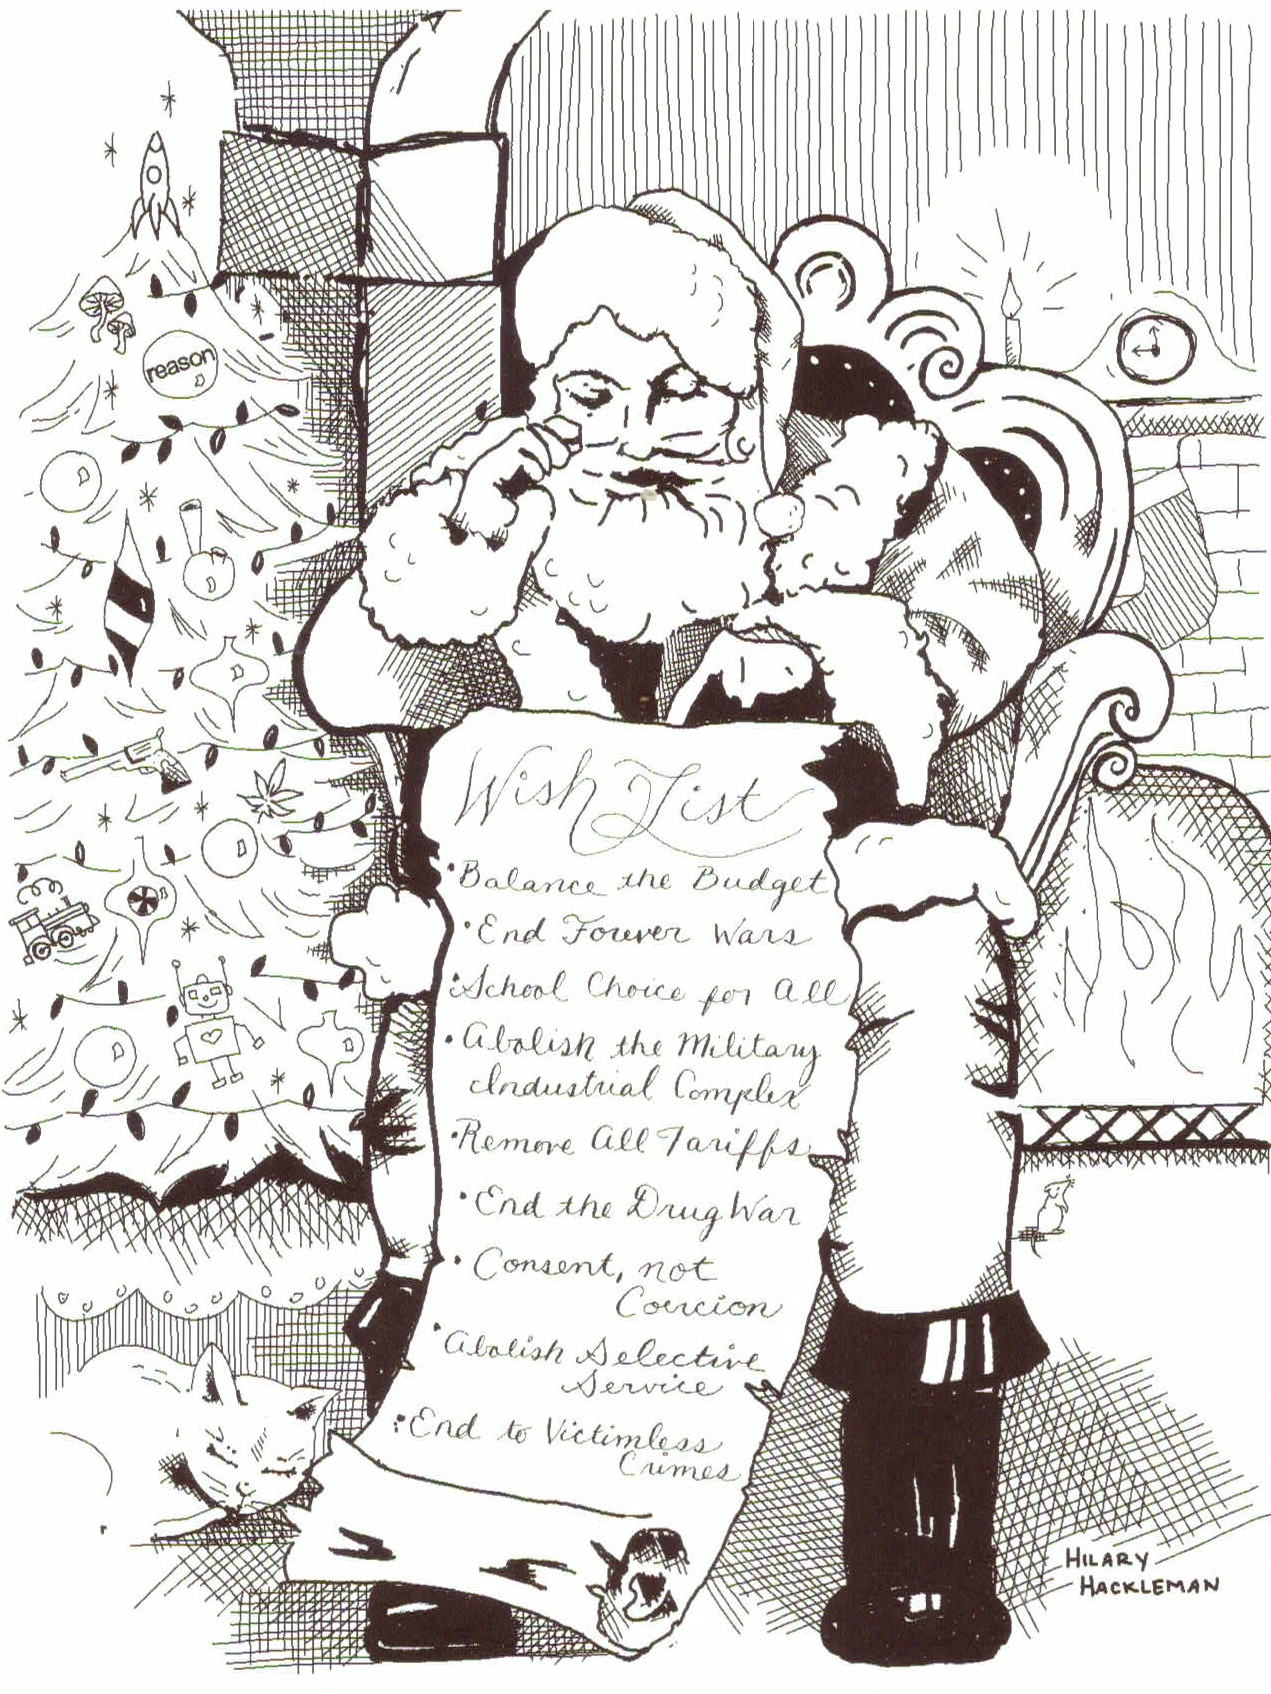 reason
Wish List
• Balance the Budget
• End Forever Wars
• School Choice for All
• Abolish the Military
Industrial Complex
• Remove All Tariffs
• End the Drug War
• Consent, not
Coercion
• Abolish Selective
Service
• End to Victimless
Crimes
HILARY
HACKLEMAN